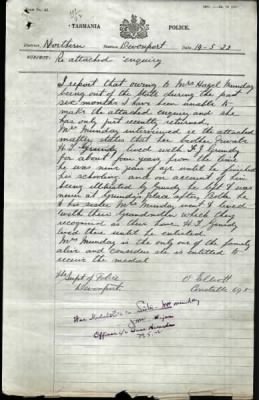 TASMANIA POLICE.
District, Northern Station, Devonport Date, 19-5-22
SUBJECT: Re attached enquiry
I report that owing to Mrs Hazel Munday
being out of the State during the past
six months I have been unable to
make the attached enquiry and she
has only just recently returned.
Mrs Munday interviewed re the attached
matter states that her brother Private
H J Grundy lived with H J Grundy
for about four years, from the time
he was nine years of age until he finished
his schooling, and on account of him
being illtreated by Grundy he left & was
never at Grundy's place after. Both he
& his sister Mrs Munday went & lived
with their Grandmother which they
recognised as their home. H J Grundy
lived there until he enlisted.
Mrs Munday is the only one of the family
alive and considers she is entitled to
receive the medal
The Supt of Police
Devonport
Elliott
Constable
Mrs Munday
Officer i/c Base Records